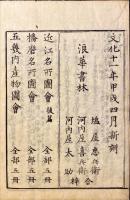 文化十一年甲戌四月新刻
浪華書林
塩屋忠兵衛
河内屋喜兵衛
河内屋太助
合梓
近江名所圖會 後篇 全部五冊
播磨名所圖會 全部五冊
五畿内産物圖會 全部五冊